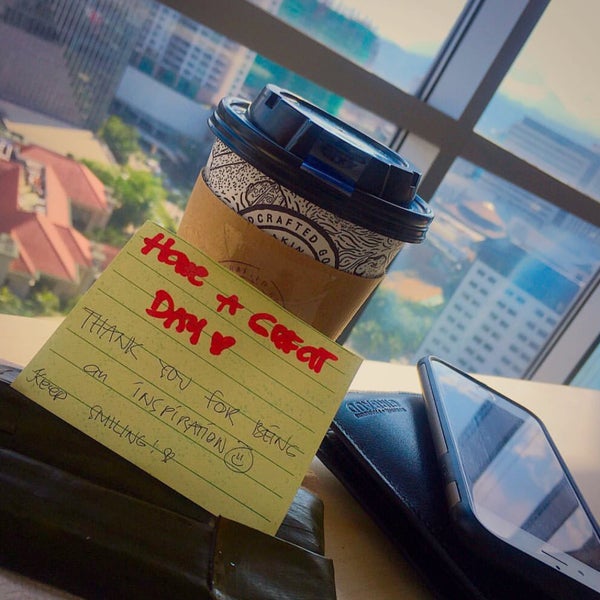 HAVE A GREAT
DAY
THANK YOU FOR BEING
an INSPIRATION
KEEP
SMILING!
DCRAFTED